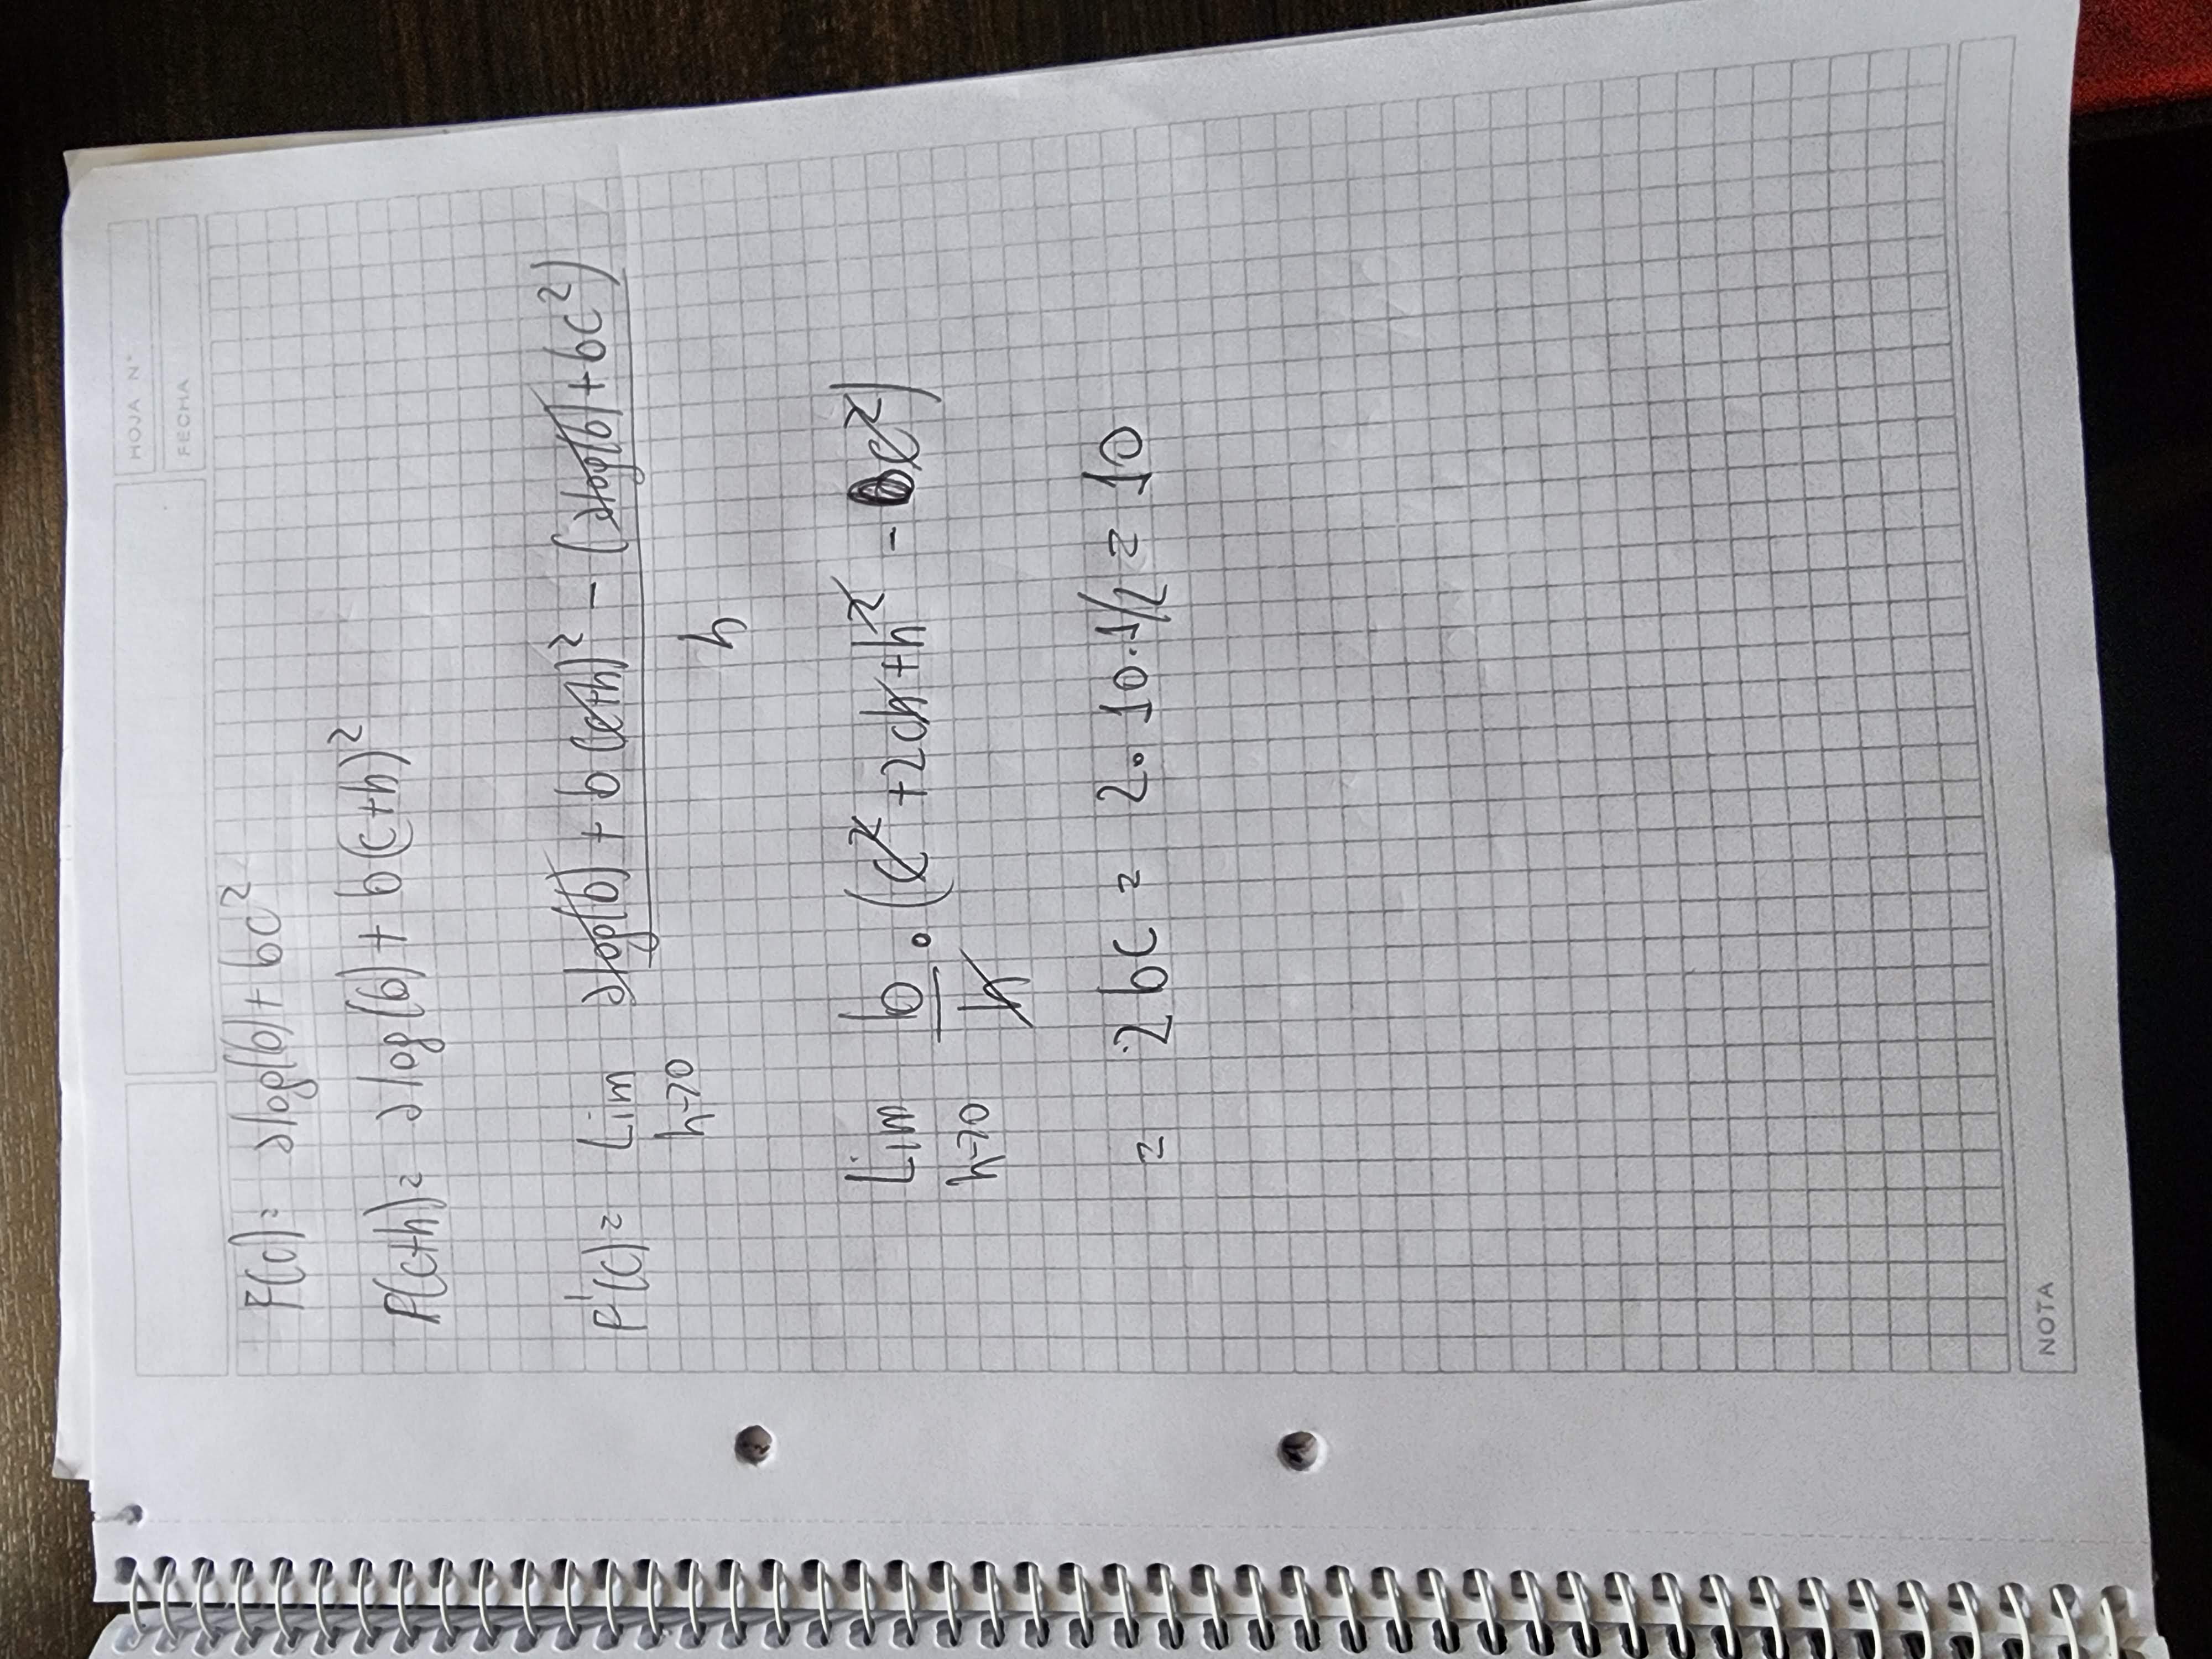 HOJA N°
FECHA
F(c) = a log(b) + bc²
F(c+h) = a log(b) + b(c+h)²
F'(c) = Lim h→0 a log(b) + b(c+h)² - (a log(b) + bc²) / h
Lim h→0 b/h · (c² + 2ch + h² - c²)
= 2bc = 2 · 10 · 1/2 = 10
NOTA